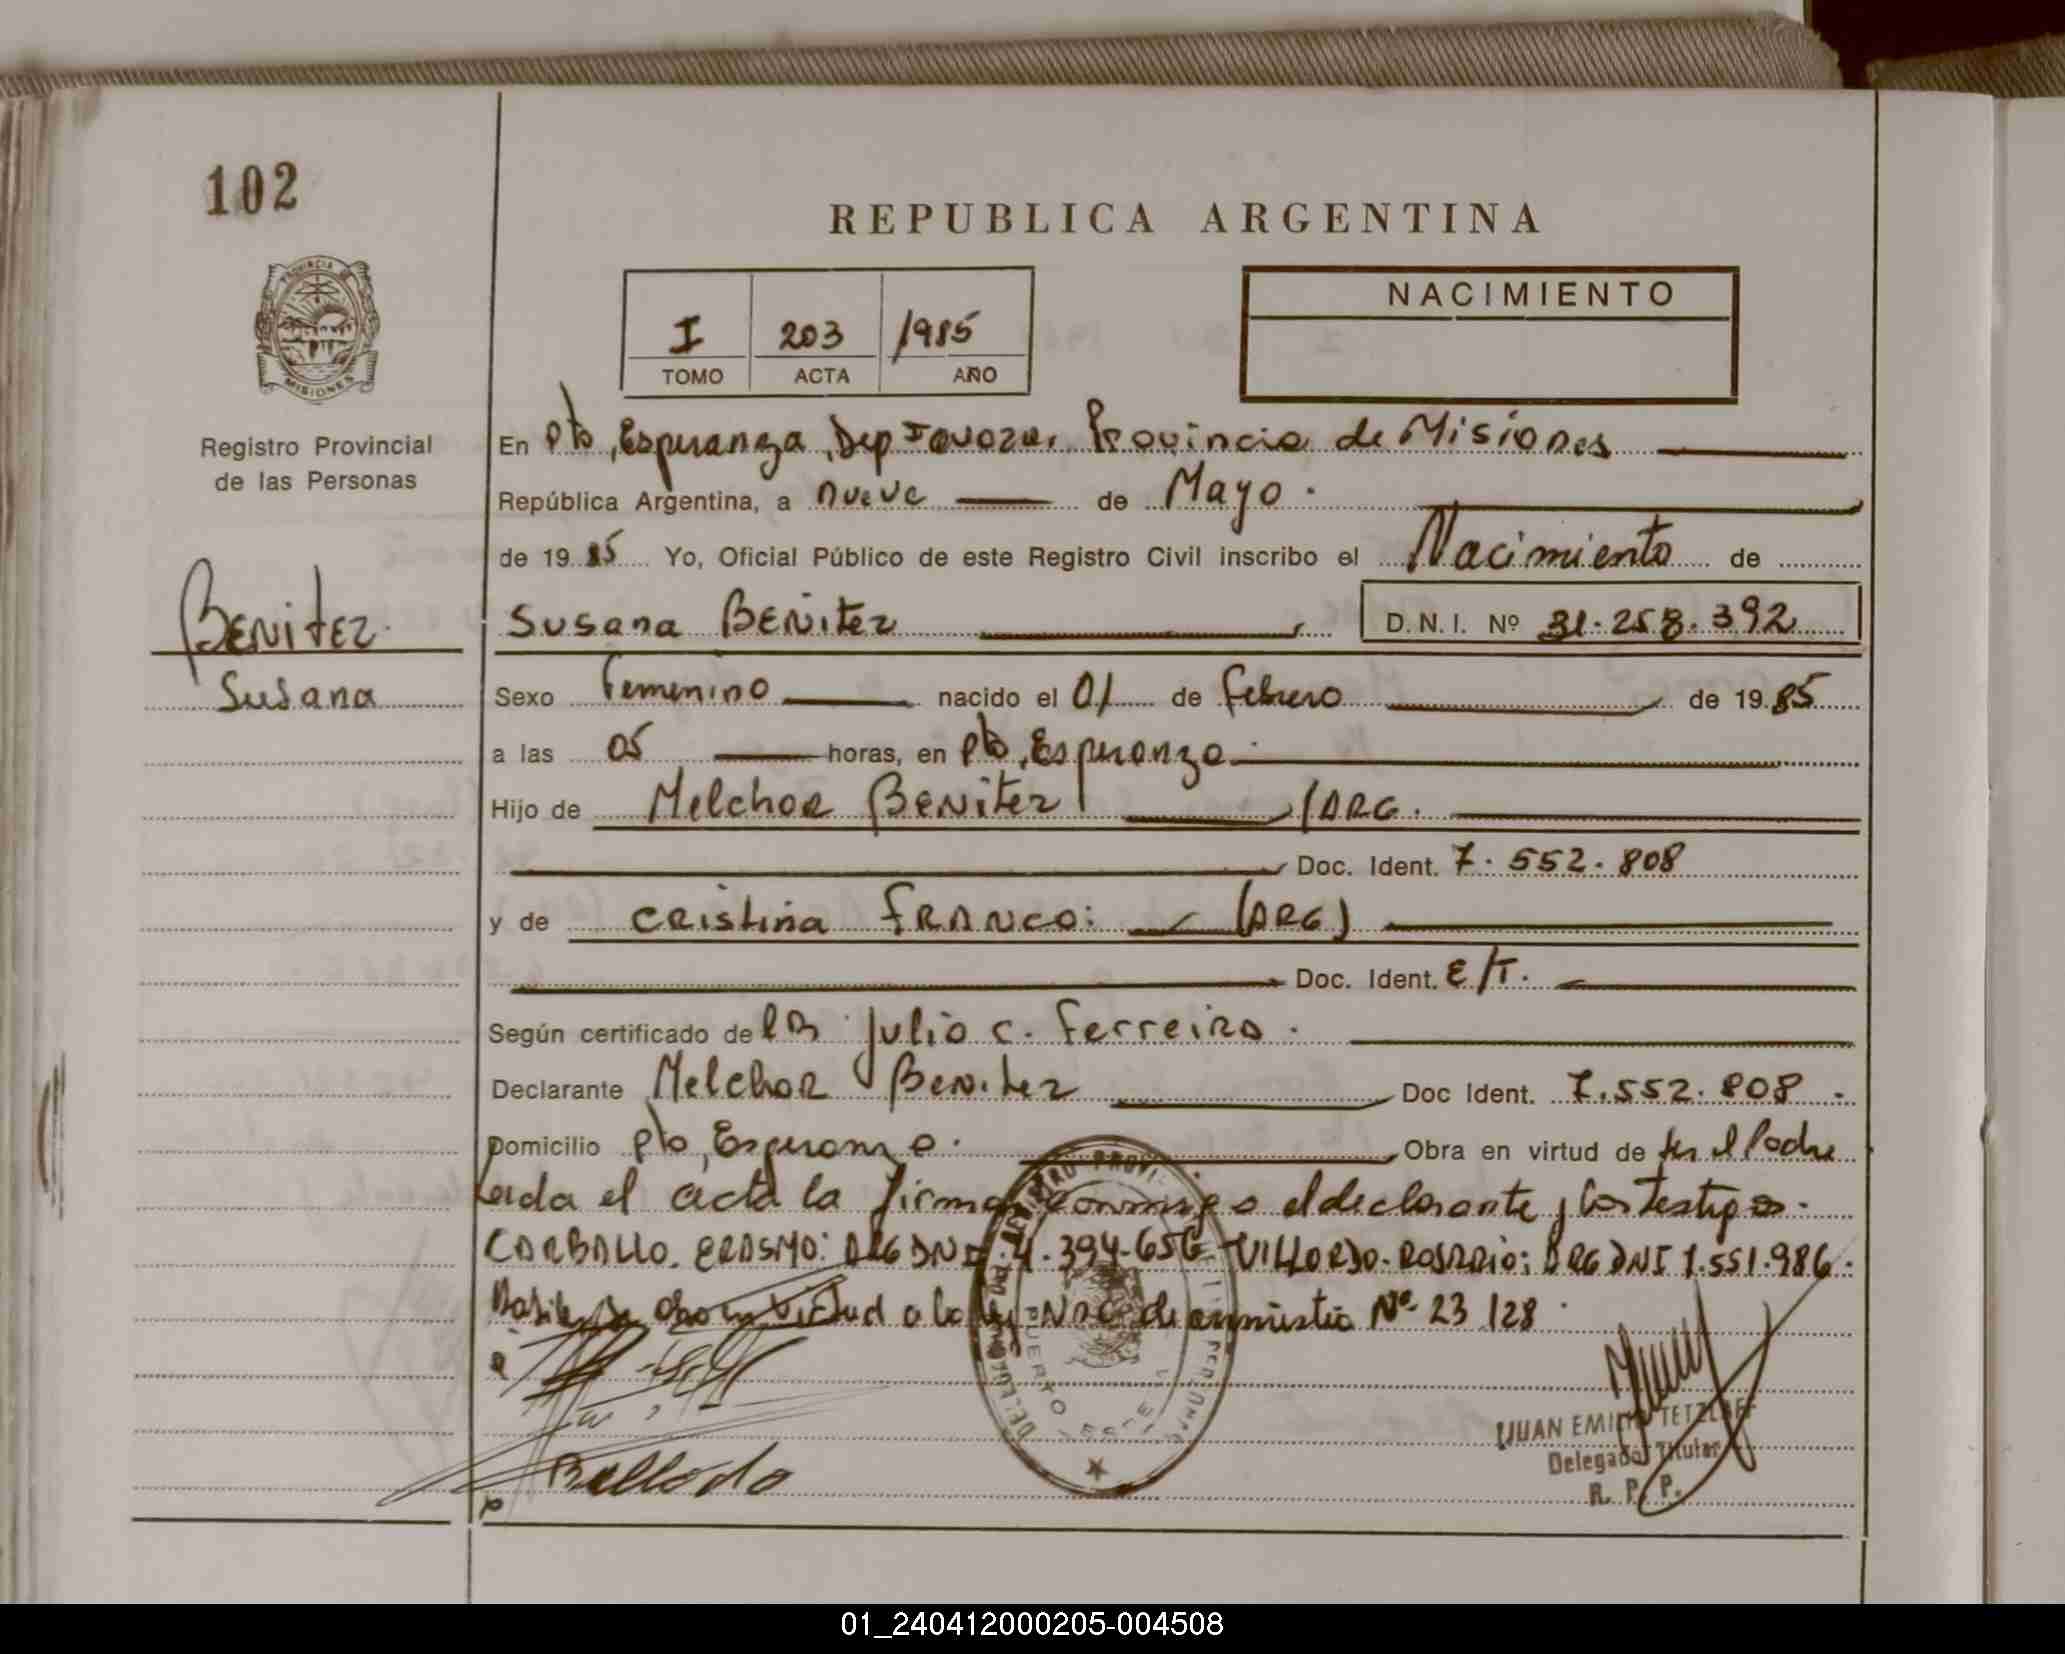 102
REPUBLICA ARGENTINA
PROVINCIA DE
MISIONES
I 203 1985
TOMO ACTA AÑO
NACIMIENTO
Registro Provincial
de las Personas
En Pto, Esperanza, Dep Provincia de Misiones
República Argentina, a nueve de Mayo.
de 19 85 Yo, Oficial Público de este Registro Civil inscribo el Nacimiento de
BENITEZ
Susana
Susana BENITEZ D.N.I. Nº 31.258.392
Sexo Femenino nacido el 01 de Febrero de 19 85
a las 05 horas, en Pto, Esperanza.
Hijo de Melchor BENITEZ /ARG.
Doc. Ident. 7.552.808
y de CRistina FRANCO: (ARG)
Doc. Ident. E/T.
Según certificado de Julio C. Ferreira.
Declarante Melchor Benitez Doc Ident. 7.552.808.
Domicilio Pto, Esperanza. Obra en virtud de ser el Padre
Leida el acta la firman conmigo el declarante y los testigos.
CARBALLO. ERASMO: ARG DNI. 4.394.656 VILLORDO. ROSARIO: ARG DNI 7.551.986.
virtud a la ley Nac de amnistia Nº 23 128.
JUAN EMILIO TETZLAFF
Delegado Titular
R. P. P.
01_240412000205-004508